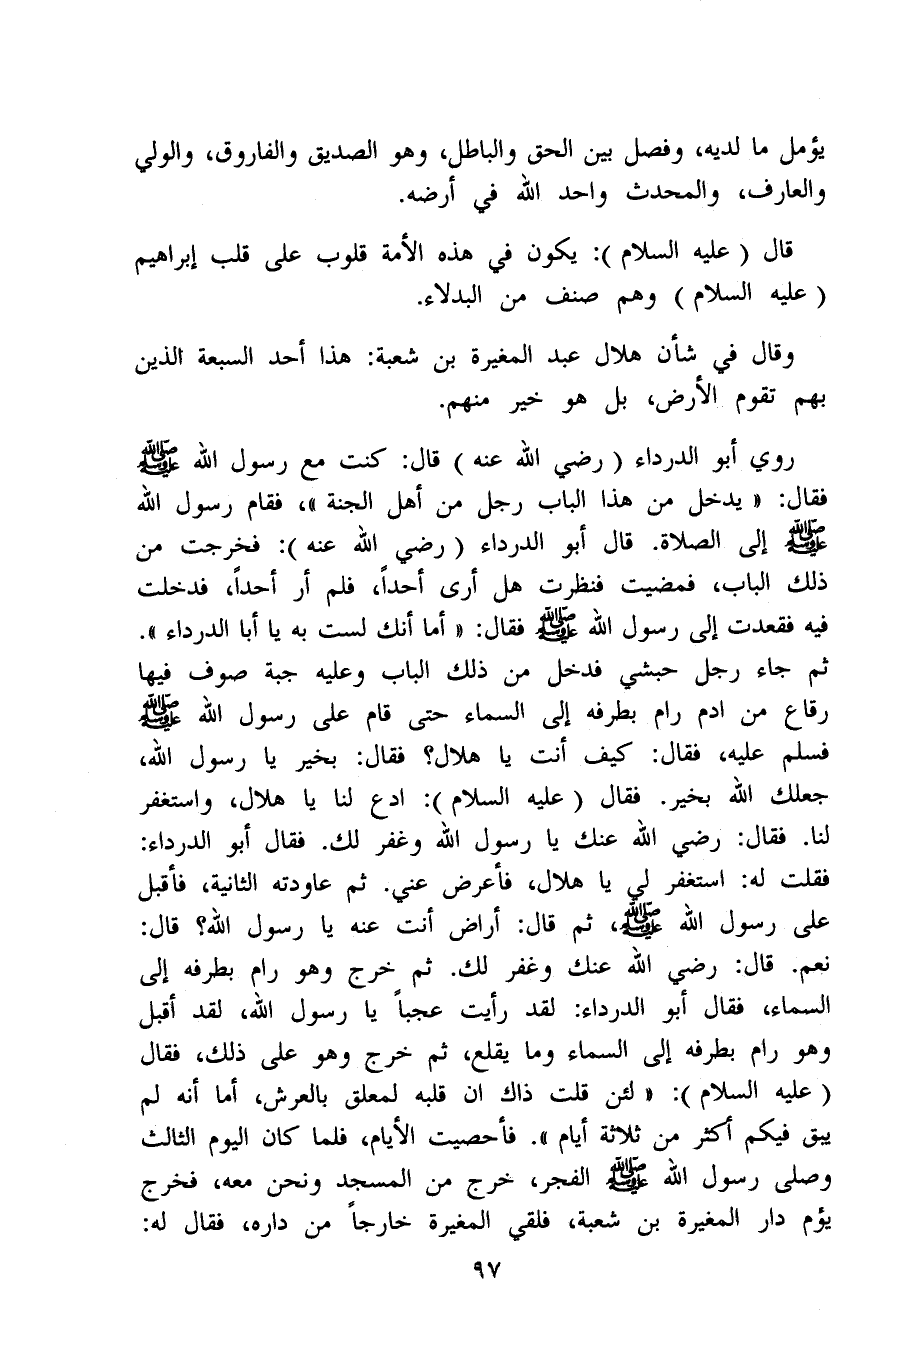 يؤمل ما لديه، وفصل بين الحق والباطل، وهو الصديق والفاروق، والولي
والعارف، والمحدث واحد الله في أرضه.
قال ( عليه السلام ): يكون في هذه الأمة قلوب على قلب إبراهيم
( عليه السلام ) وهم صنف من البدلاء.
وقال في شأن هلال عبد المغيرة بن شعبة: هذا أحد السبعة الذين
بهم تقوم الأرض، بل هو خير منهم.
روي أبو الدرداء ( رضي الله عنه ) قال: كنت مع رسول الله ﷺ
فقال: « يدخل من هذا الباب رجل من أهل الجنة »، فقام رسول الله
ﷺ إلى الصلاة. قال أبو الدرداء ( رضي الله عنه ): فخرجت من
ذلك الباب، فمضيت فنظرت هل أرى أحداً، فلم أر أحداً، فدخلت
فيه فقعدت إلى رسول الله ﷺ فقال: « أما أنك لست به يا أبا الدرداء ».
ثم جاء رجل حبشي فدخل من ذلك الباب وعليه جبة صوف فيها
رقاع من ادم رام بطرفه إلى السماء حتى قام على رسول الله ﷺ
فسلم عليه، فقال: كيف أنت يا هلال؟ فقال: بخير يا رسول الله،
جعلك الله بخير. فقال ( عليه السلام ): ادع لنا يا هلال، واستغفر
لنا. فقال: رضي الله عنك يا رسول الله وغفر لك. فقال أبو الدرداء:
فقلت له: استغفر لي يا هلال، فأعرض عني. ثم عاودته الثانية، فأقبل
على رسول الله ﷺ، ثم قال: أراض أنت عنه يا رسول الله؟ قال:
نعم. قال: رضي الله عنك وغفر لك. ثم خرج وهو رام بطرفه إلى
السماء، فقال أبو الدرداء: لقد رأيت عجباً يا رسول الله، لقد أقبل
وهو رام بطرفه إلى السماء وما يقلع، ثم خرج وهو على ذلك، فقال
( عليه السلام ): « لئن قلت ذاك ان قلبه لمعلق بالعرش، أما أنه لم
يبق فيكم أكثر من ثلاثة أيام ». فأحصيت الأيام، فلما كان اليوم الثالث
وصلى رسول الله ﷺ الفجر، خرج من المسجد ونحن معه، فخرج
يؤم دار المغيرة بن شعبة، فلقي المغيرة خارجاً من داره، فقال له:
٩٧